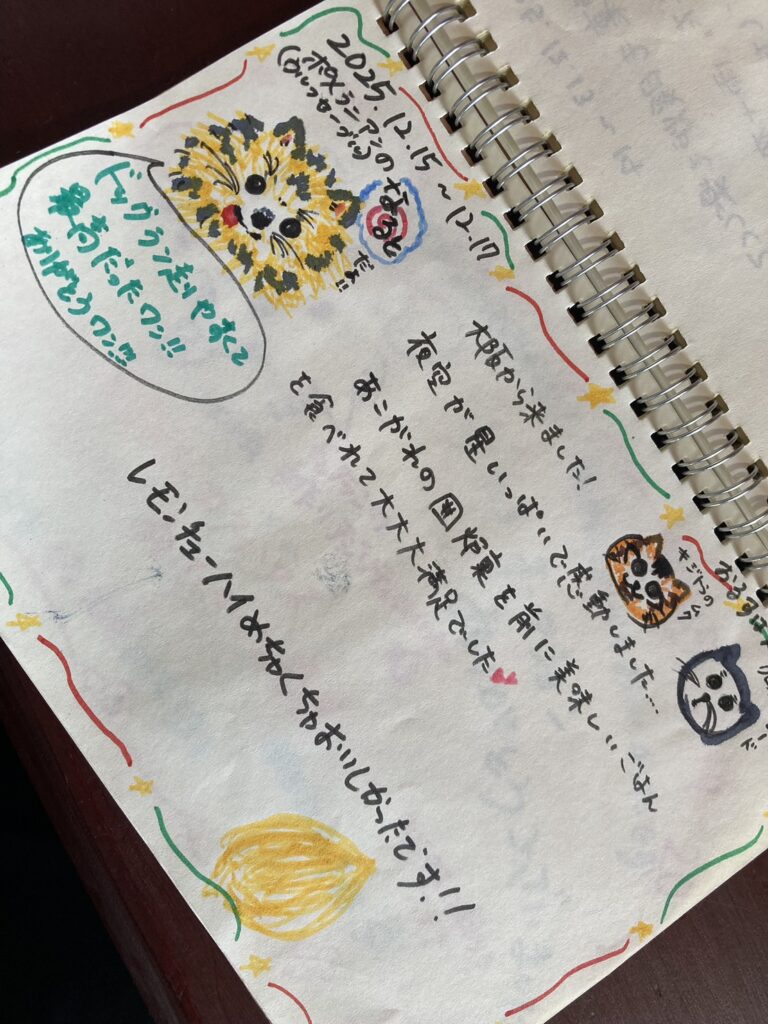 2025.12.15 ~ 12.17
ポメラニアンの なると だよ!!
(ウルフセーブル)
ドッグラン走りやすくて
最高だったワン!!
ありがとうワン!!!
大阪から来ました!
夜空が星いっぱいで感動しました....
あこがれの囲炉裏を前に美味しいごはん
を食べれて大大大満足でした
キジトラの
ムク
おるすば
レモンチューハイめちゃくちゃおいしかったです!!